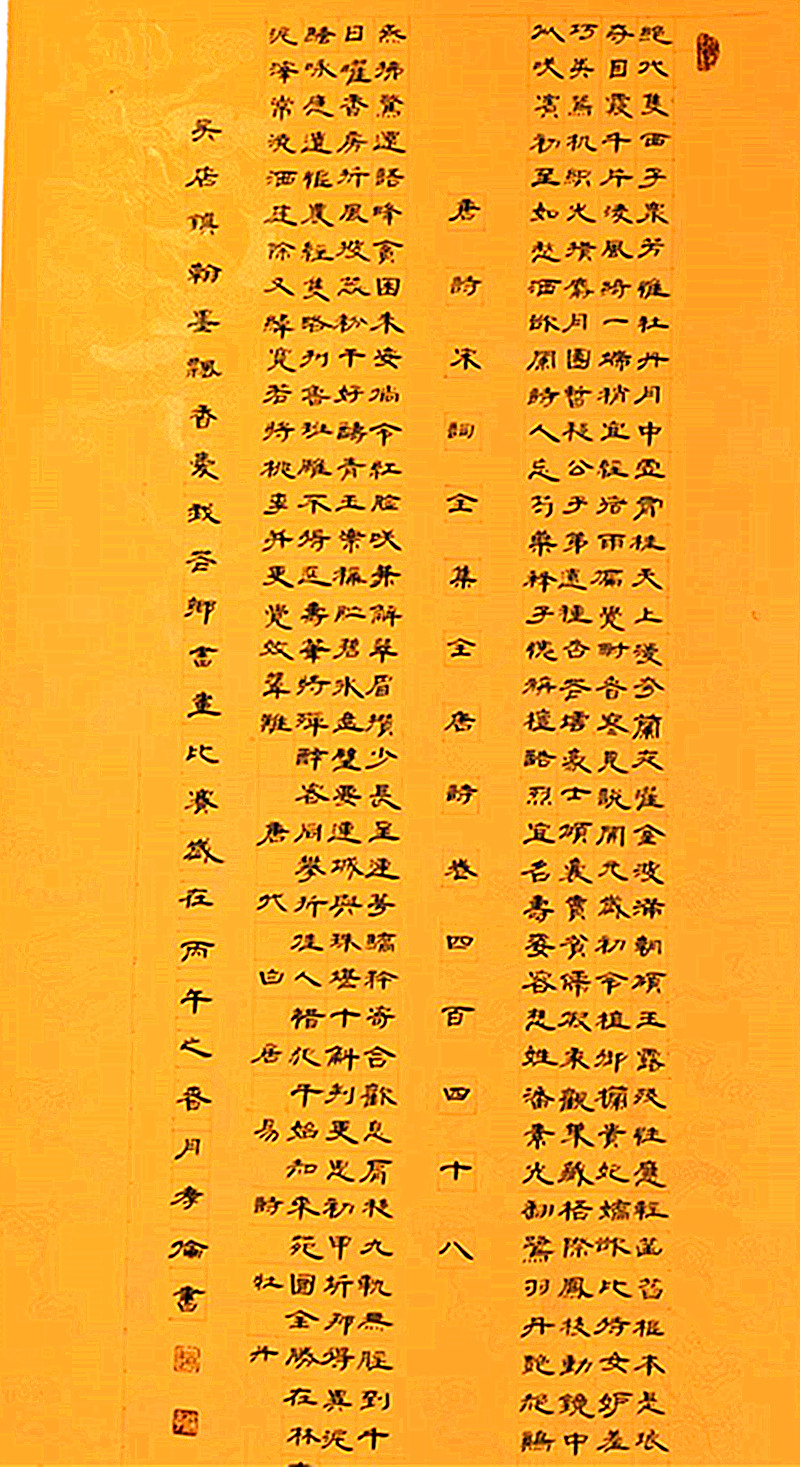 絶代隻西子衆芳惟牡丹月中虛有桂天上漫夸蘭夜濯金波滿朝傾玉露殘性應輕菡萏根本是琅
夸目霞千片凌風綺一端稍宜經宿雨偏覺耐春寒見說開元歲初令植御欄貴妃嬌欲比侍女妒羞
巧類鴛机織光攢麝月團暫移公子第還種杏花壇豪士傾囊買貧儒假乘觀葉藏梧際鳳枝動鏡中
似咲賓初至如愁酒欲闌詩人忘芍藥釋子愧栴檀酷烈宜名壽姿容想姓潘素光翻鷺羽丹艷赩鷄
唐詩宋詞全集全唐詩卷四百四十八
燕拂驚還語蜂貪困未安倘令紅臉咲兼解翠眉攢少長呈連萼驕矜寄合歡息肩移九軌無脛到千
日曜香房折風披蕊粉干好酬青玉案稱貯碧冰盤璧要連城與珠堪十斛判更思初甲坼那得異泥
騷咏應遺恨農經隻略刊魯班雕不得延壽筆將殫醉客同攀折佳人惜犯干始知來苑囿全勝在林
泥滓常澆洒庭除又綽寬若將桃李并更覺效顰難
唐代白居易詩牡丹
吴店鎮翰墨飄香愛我鄉書畫比賽歲在丙午之春月李倫書